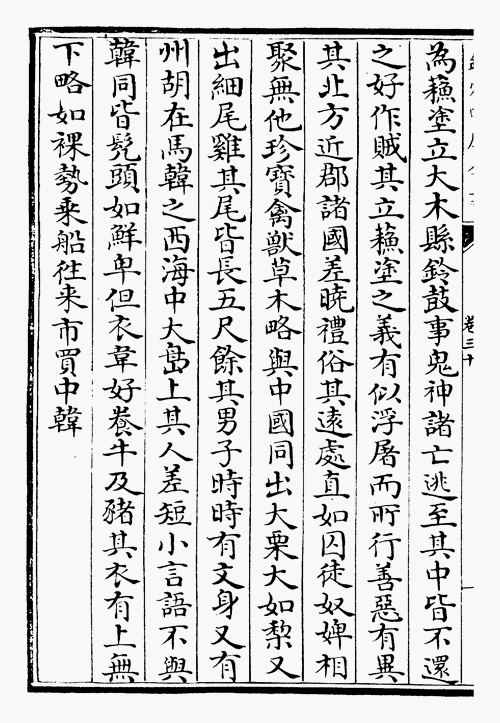 卷三十
為蘓塗立大木縣鈴鼓事鬼神諸亡逃至其中皆不還
之好作賊其立蘓塗之義有似浮屠而所行善惡有異
其北方近郡諸國差曉禮俗其遠處直如囚徒奴婢相
聚無他珍寶禽獸草木略與中國同出大栗大如梨又
出細尾雞其尾皆長五尺餘其男子時時有文身又有
州胡在馬韓之西海中大島上其人差短小言語不與
韓同皆髡頭如鮮卑但衣韋好養牛及豬其衣有上無
下略如裸勢乗船徃来市買中韓